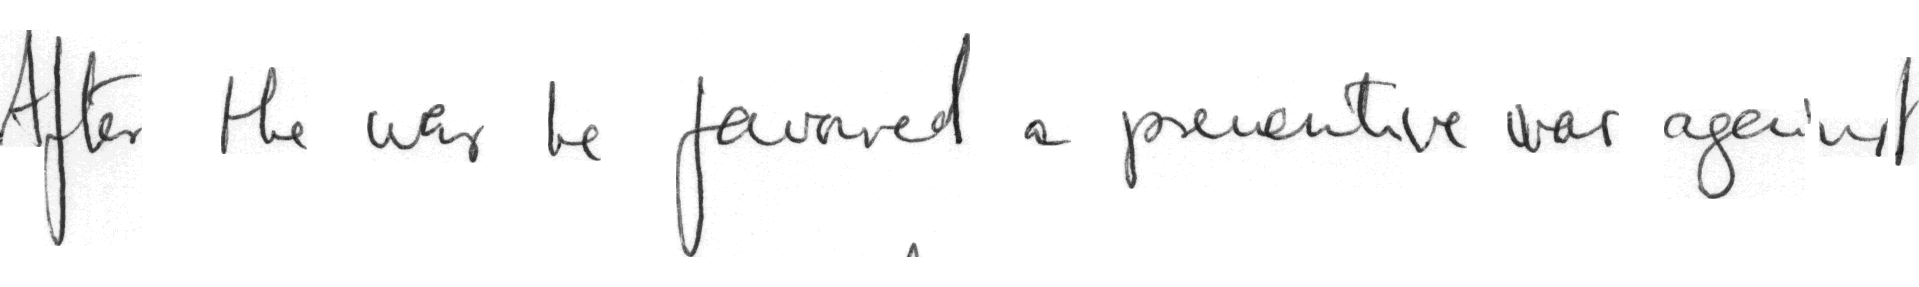 After the war he favoured a preventive war against